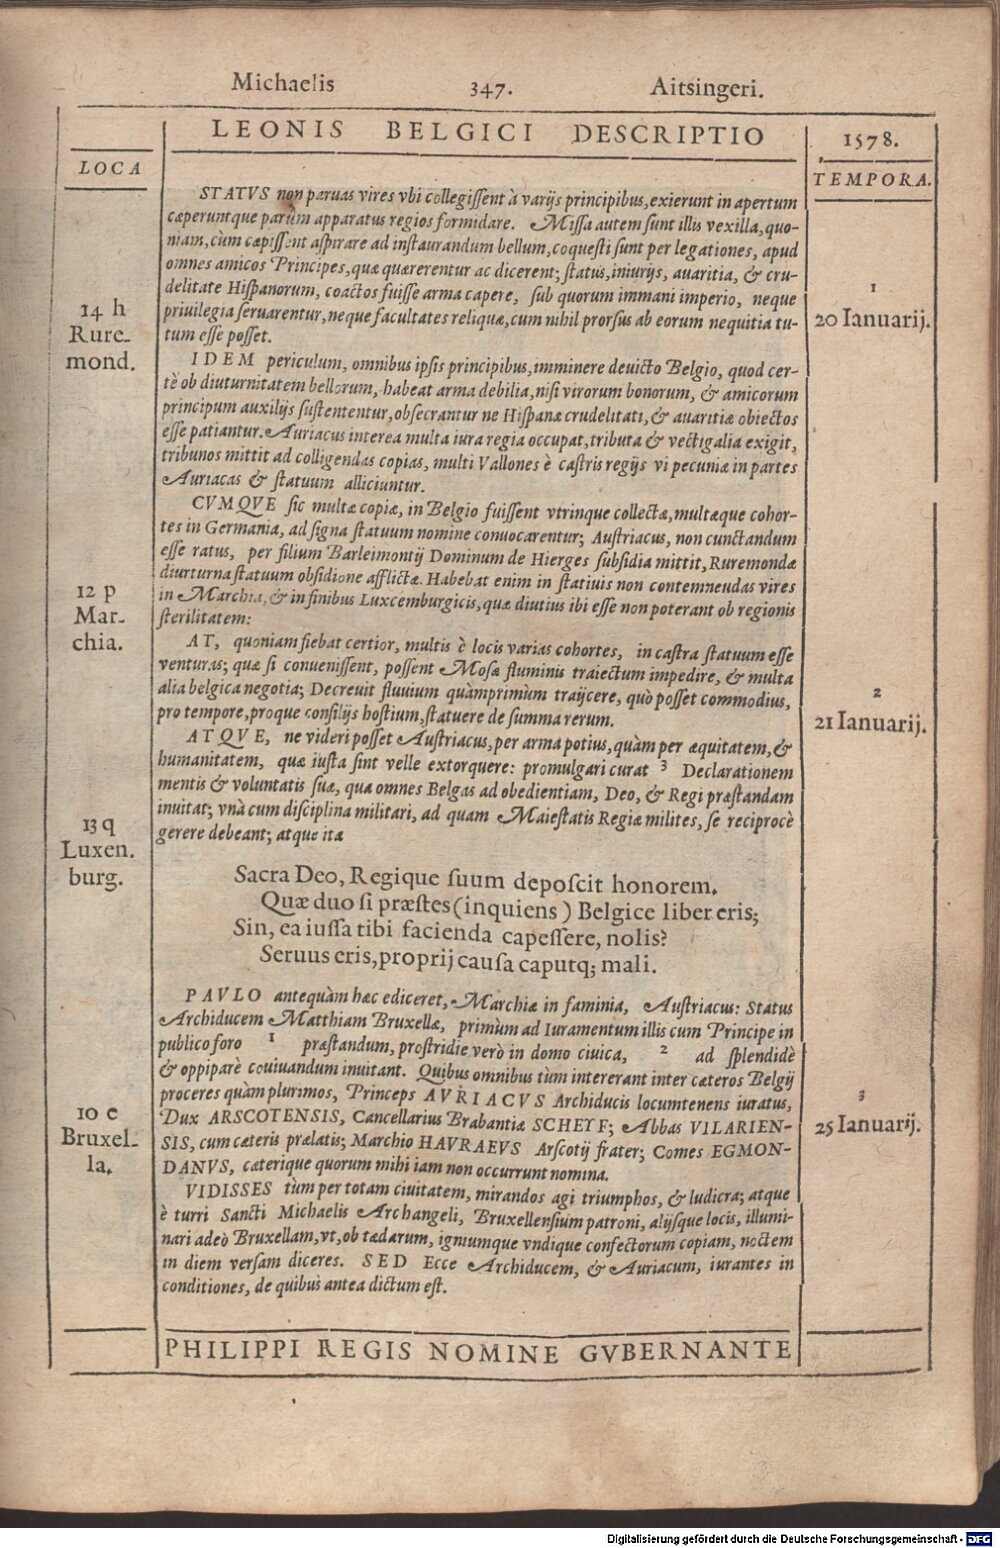 Michaelis 347. Aitsingeri.
LEONIS BELGICI DESCRIPTIO
1578.
LOCA
TEMPORA.
STATVS non paruas vires vbi collegiſſent à varijs principibus, exierunt in apertum
cæperuntque parùm apparatus regios formidare. Miſſa autem ſunt illis vexilla, quo-
niam, cùm cæpiſſent aſpirare ad inſtaurandum bellum, coqueſti ſunt per legationes, apud
omnes amicos Principes, quæ quærerentur ac dicerent; ſtatus, iniurijs, auaritia, & cru-
delitate Hiſpanorum, coactos fuiſſe arma capere, ſub quorum immani imperio, neque
priuilegia ſeruarentur, neque facultates reliquæ, cum nihil prorſus ab eorum nequitia tu-
tum eſſe poſſet.
14 h
Rure-
mond.
1
20 Ianuarij.
IDEM periculum, omnibus ipſis principibus, imminere deuicto Belgio, quod cer-
tè ob diuturnitatem bellorum, habeat arma debilia, niſi virorum bonorum, & amicorum
principum auxilijs ſuſtententur, obſecrantur ne Hiſpanæ crudelitati, & auaritiæ obiectos
eſſe patiantur. Auriacus interea multa iura regia occupat, tributa & vectigalia exigit,
tribunos mittit ad colligendas copias, multi Vallones è caſtris regijs vi pecuniæ in partes
Auriacas & ſtatuum alliciuntur.
CVMQVE ſic multæ copiæ, in Belgio fuiſſent vtrinque collectæ, multæque cohor-
tes in Germania, ad ſigna ſtatuum nomine conuocarentur; Auſtriacus, non cunctandum
eſſe ratus, per filium Barleimontij Dominum de Hierges ſubſidia mittit, Ruremondæ
diurturna ſtatuum obſidione afflictæ. Habebat enim in ſtatiuis non contemnendas vires
in Marchia, & in finibus Luxcemburgicis, quæ diutius ibi eſſe non poterant ob regionis
ſterilitatem:
12 p
Mar-
chia.
AT, quoniam fiebat certior, multis è locis varias cohortes, in caſtra ſtatuum eſſe
venturas; quæ ſi conueniſſent, poſſent Moſæ fluminis traiectum impedire, & multa
alia belgica negotia; Decreuit fluuium quàmprimùm traijcere, quò poſſet commodius,
pro tempore, proque conſilijs hoſtium, ſtatuere de ſumma rerum.
2
21 Ianuarij.
ATQVE, ne videri poſſet Auſtriacus, per arma potius, quàm per æquitatem, &
humanitatem, quæ iuſta ſint velle extorquere: promulgari curat 3 Declarationem
mentis & voluntatis ſuæ, qua omnes Belgas ad obedientiam, Deo, & Regi præſtandam
inuitat; vnà cum diſciplina militari, ad quam Maieſtatis Regiæ milites, ſe reciprocè
gerere debeant; atque ita
13 q
Luxen.
burg.
Sacra Deo, Regique ſuum depoſcit honorem.
Quæ duo ſi præſtes (inquiens) Belgice liber eris;
Sin, ea iuſſa tibi facienda capeſſere, nolis?
Seruus eris, proprij cauſa caputq; mali.
PAVLO antequàm hæc ediceret, Marchiæ in faminia, Auſtriacus: Status
Archiducem Matthiam Bruxellæ, primùm ad Iuramentum illis cum Principe in
publico foro 1 præſtandum, proſtridie verò in domo ciuica, 2 ad ſplendidè
& oppiparè couiuandum inuitant. Quibus omnibus tùm intererant inter cæteros Belgij
proceres quàm plurimos, Princeps AVRIACVS Archiducis locumtenens iuratus,
Dux ARSCOTENSIS, Cancellarius Brabantiæ SCHETF; Abbas VILARIEN-
SIS, cum cæteris prælatis; Marchio HAVRAEVS Arſcotij frater; Comes EGMON-
DANVS, cæterique quorum mihi iam non occurrunt nomina.
10 e
Bruxel-
la.
3
25 Ianuarij.
VIDISSES tùm per totam ciuitatem, mirandos agi triumphos, & ludicra; atque
è turri Sancti Michaelis Archangeli, Bruxellenſium patroni, alijſque locis, illumi-
nari adeò Bruxellam, vt, ob tædarum, igniumque vndique confectorum copiam, noctem
in diem verſam diceres. SED Ecce Archiducem, & Auriacum, iurantes in
conditiones, de quibus antea dictum eſt.
PHILIPPI REGIS NOMINE GVBERNANTE
Digitalisierung gefördert durch die Deutsche Forschungsgemeinschaft - DFG